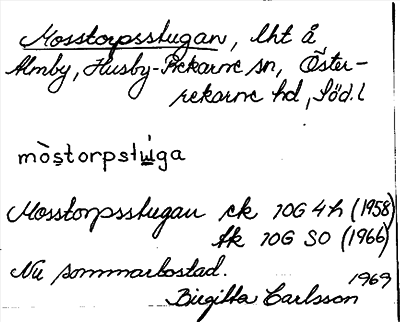 Mosstorpsstugan, lht å
Almby, Husby-Rekarne sn, Öster-
rekarne hd, Söd.l
mòstorpstuiga
Mosstorpsstugan ek 10G 4h (1958)
tk 10G SO (1966)
Nu sommarbostad.
1969
Birgitta Carlsson